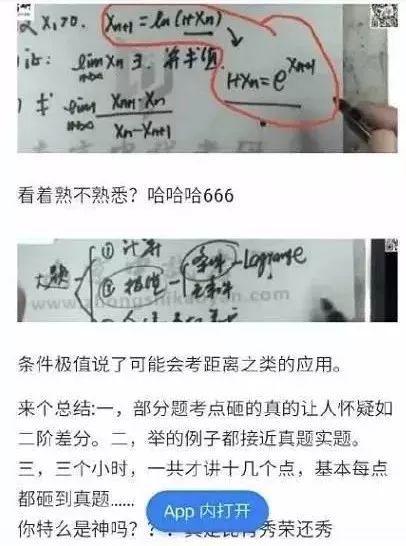 X₁>0. Xₙ₊₁=ln(1+Xₙ)
lim Xₙ ∃. 并求值
n→∞
1+Xₙ=e^Xₙ₊₁
求 lim (Xₙ₊₁·Xₙ)/(Xₙ-Xₙ₊₁)
n→∞
看着熟不熟悉？哈哈哈666
① 计算
大题
② 极值 条件-Lagrange
无条件
条件极值说了可能会考距离之类的应用。
来个总结:一，部分题考点砸的真的让人怀疑如
二阶差分。二，举的例子都接近真题实题。
三，三个小时，一共才讲十几个点，基本每点
都砸到真题......
App 内打开
你特么是神吗？？
秀荣还秀